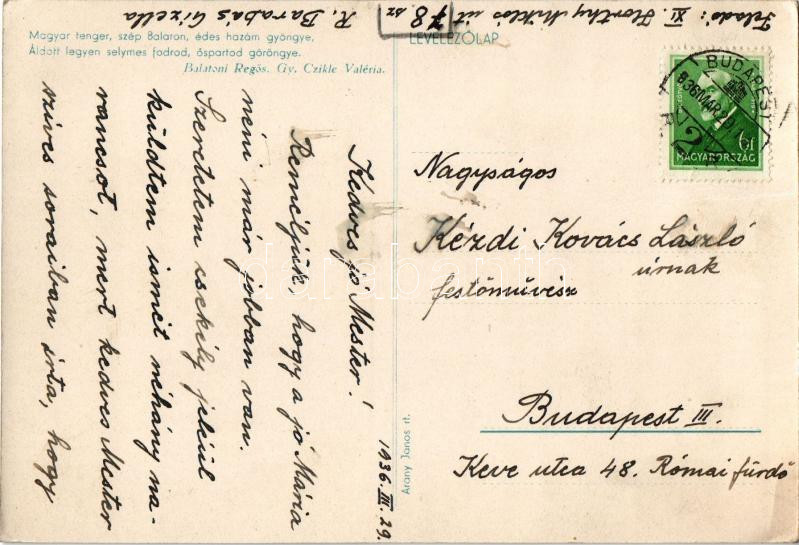 Feladó: XI. Horthy Miklós út 78. sz
R. Barabás Gizella
Magyar tenger, szép Balaton, édes hazám gyöngye,
Áldott legyen selymes fodrod, őspartod göröngye.
Balatoni Regös. Gy. Czikle Valéria.
LEVELEZŐLAP
BUDAPEST
936 MÁR 29
2
6f
MAGYARORSZÁG
1936. III. 29.
Kedves jó Mester!
Reméljük hogy a jó Mária
néni már jobban van.
Szeretetem csekély jeléül
küldtem ismét néhány na-
rancsot, mert kedves Mester
szíves soraiban írta, hogy
Nagyságos
Kézdi Kovács László
úrnak
festőművész
Budapest III.
Keve utca 48. Római fürdő
Arany János rt.
darabanth